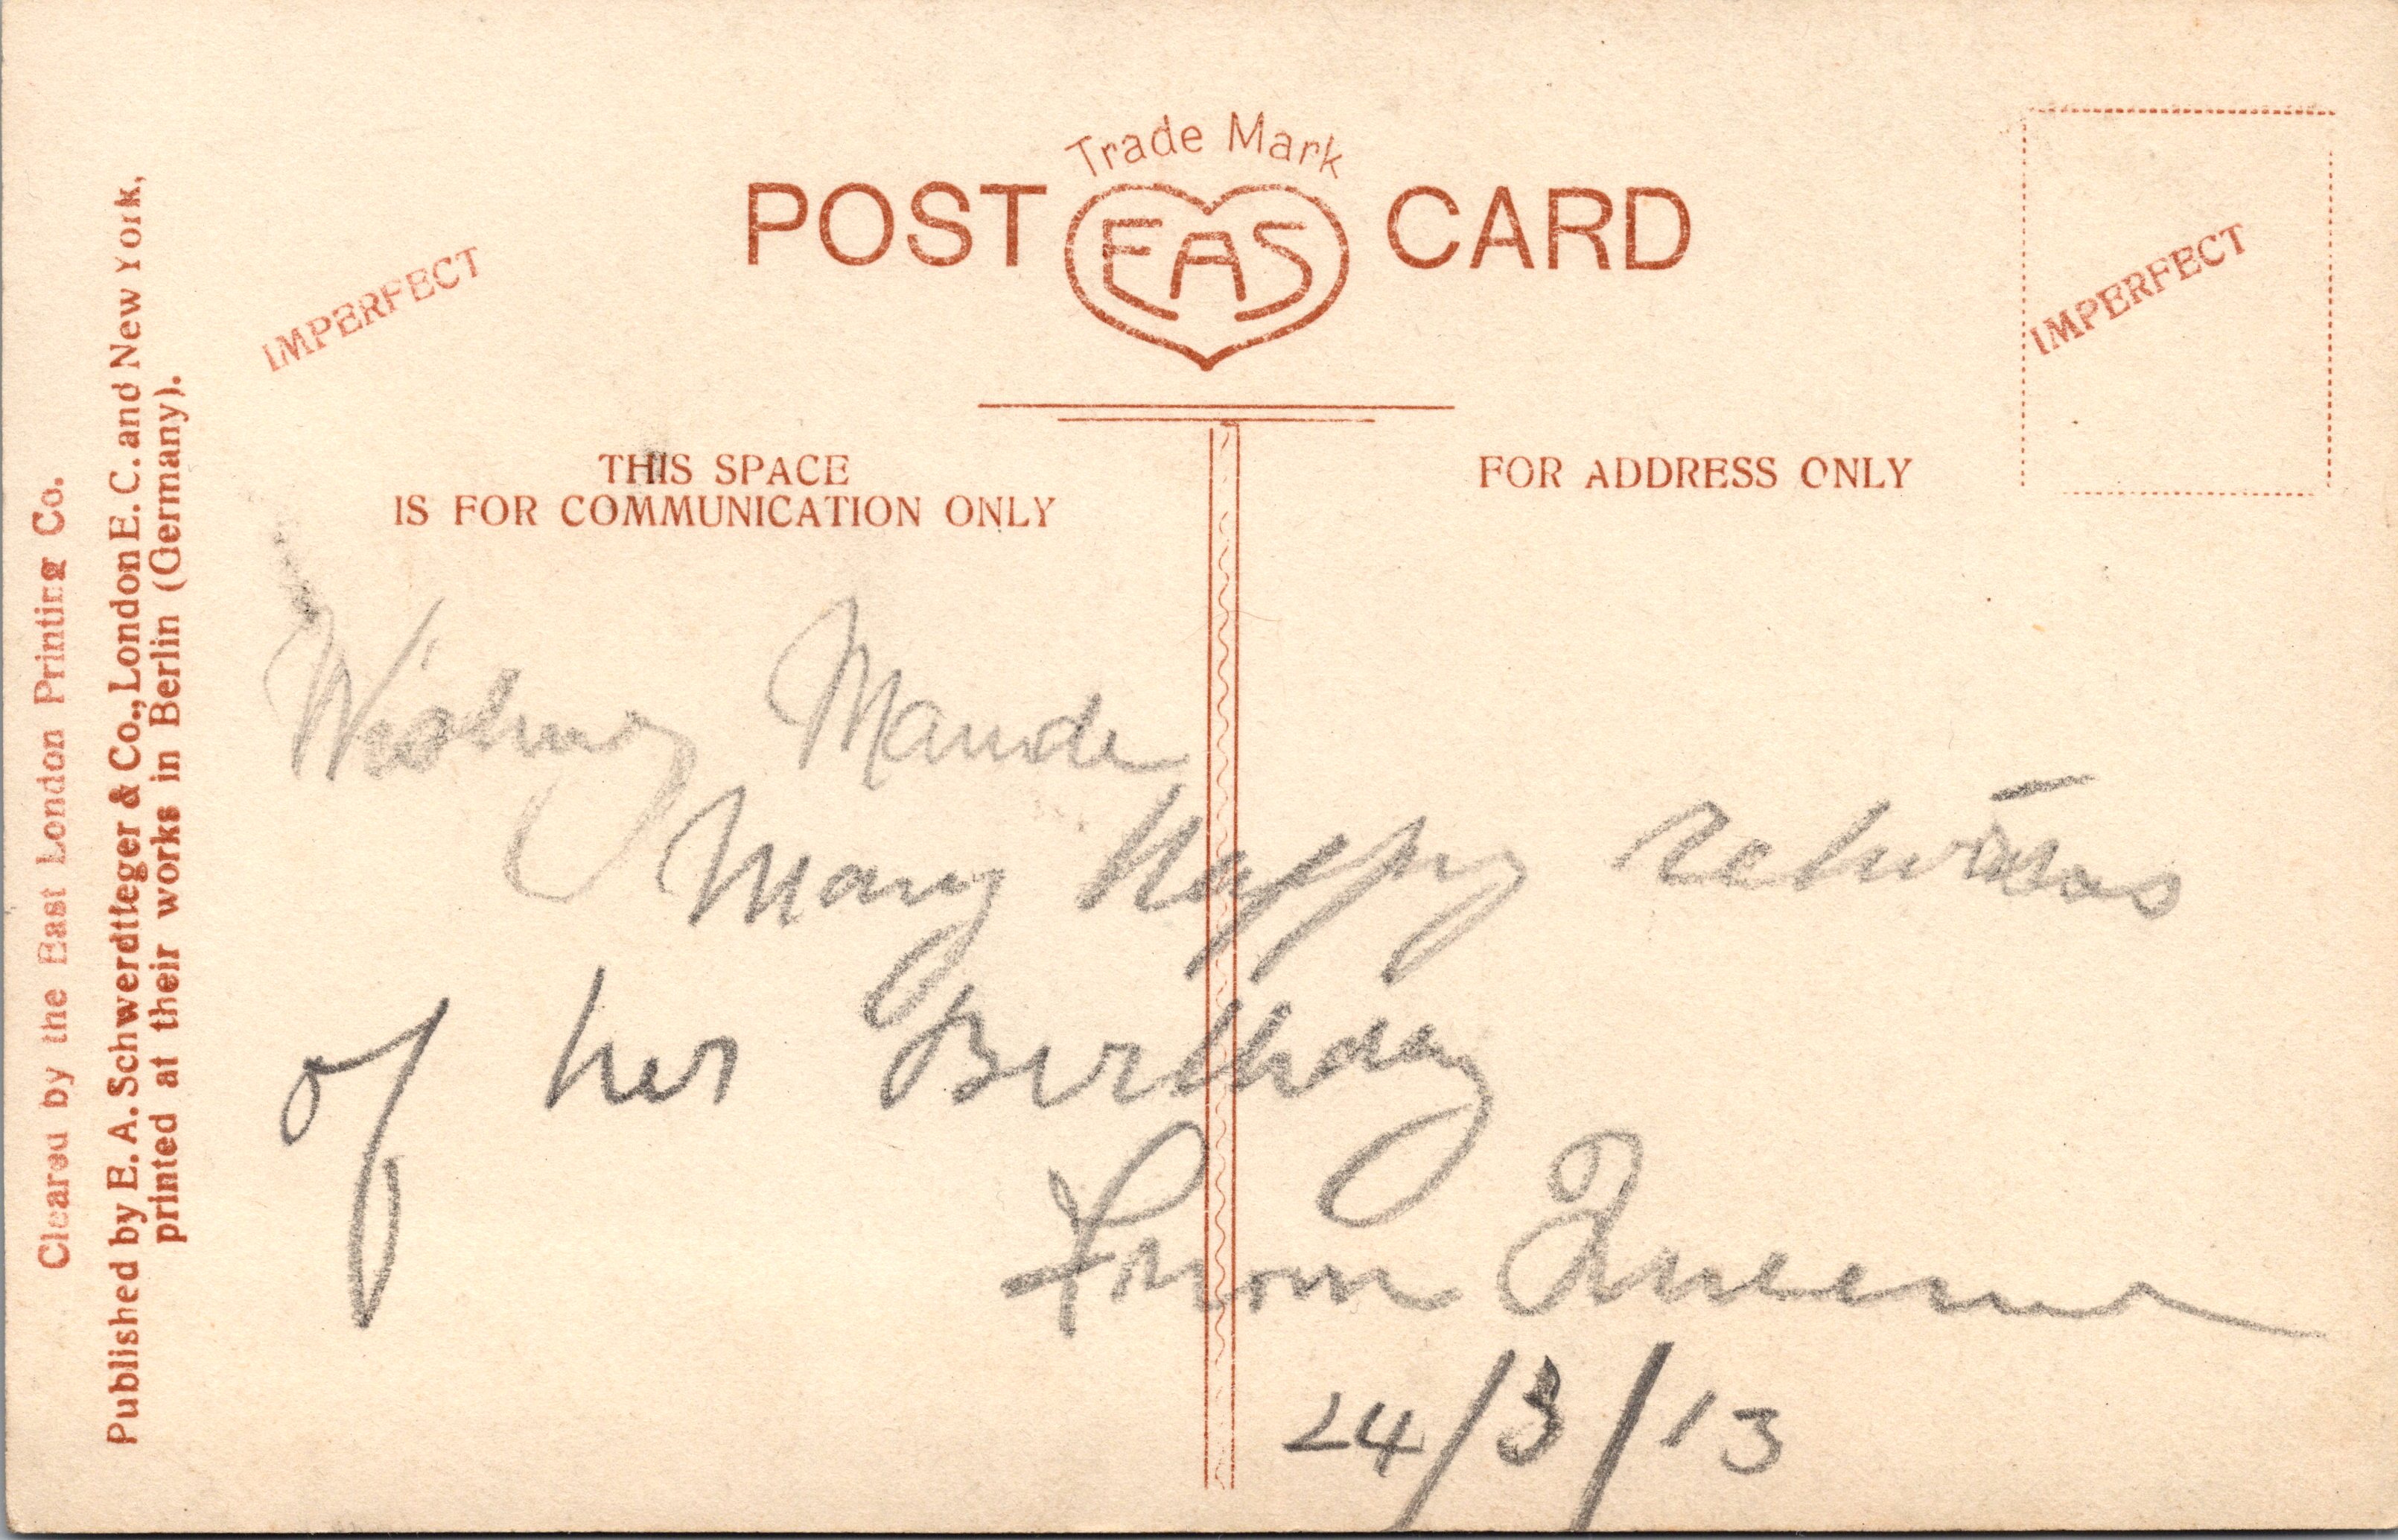 Trade Mark
POST EAS CARD
IMPERFECT
IMPERFECT
THIS SPACE
IS FOR COMMUNICATION ONLY
FOR ADDRESS ONLY
Wishing Maude
Many Happy returns
of her Birthday
From Queenie
24/3/13
Cleared by the East London Printing Co.
Published by E. A. Schwerdtfeger & Co., London E. C. and New York,
printed at their works in Berlin (Germany).